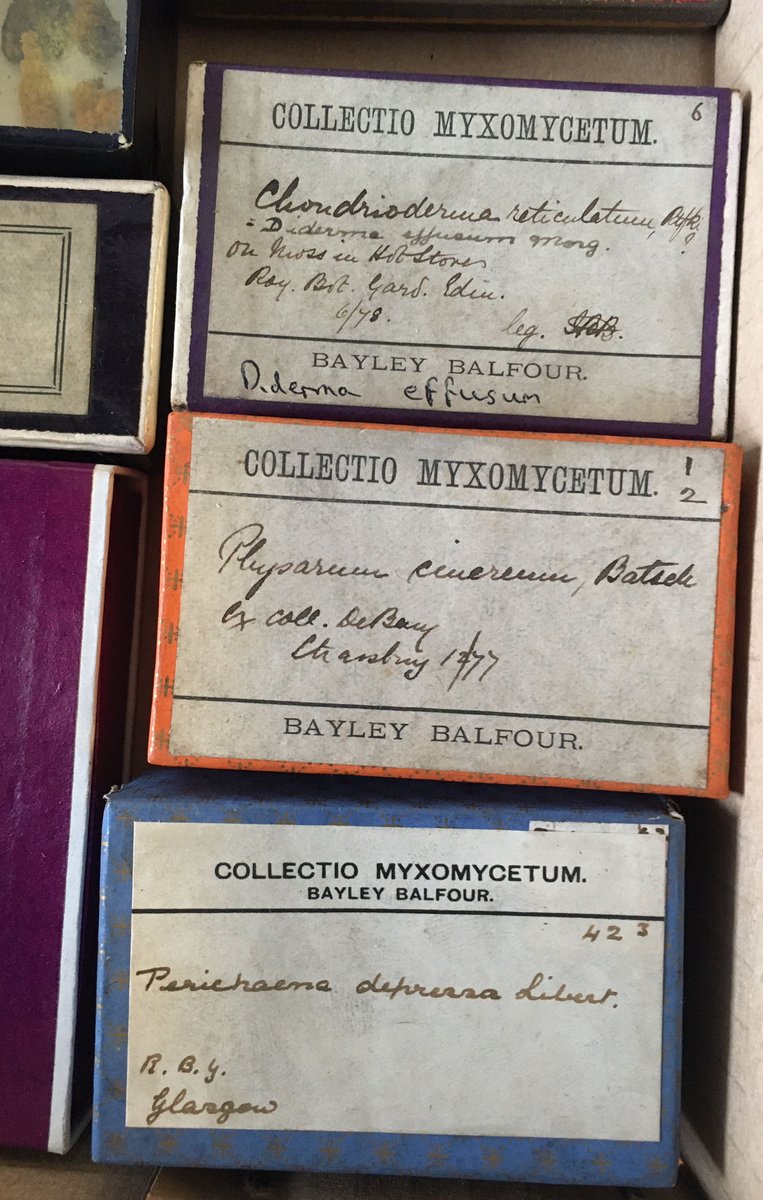 COLLECTIO MYXOMYCETUM. 6
Chondrioderma reticulatum, Rfki.
= Diderma effusum Morg.
on Moss in Hot Stores
Roy. Bot. Gard. Edin.
6/78.
leg.
BAYLEY BALFOUR.
Diderma effusum
COLLECTIO MYXOMYCETUM. 1
2
Physarum cinereum, Batsch
Ex coll. DeBary
Strassburg 1877
BAYLEY BALFOUR.
COLLECTIO MYXOMYCETUM.
BAYLEY BALFOUR.
42 3
Perichaena depressa Libert.
R. B. G.
Glasgow